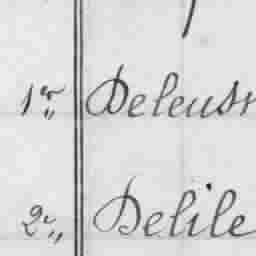 1r„ Deleust
2„ Delile